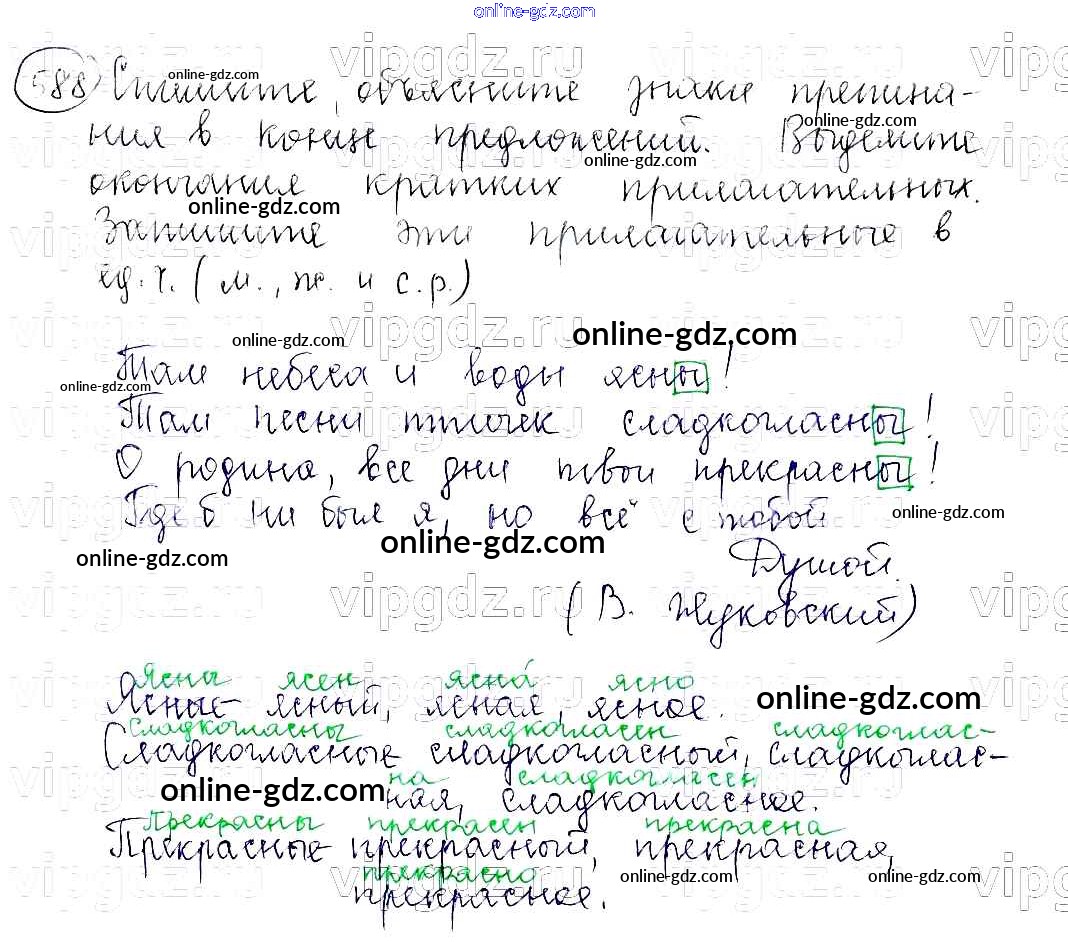 online-gdz.com
588 Спишите, объясните знаки препина-
ния в конце предложений. Выделите
окончания кратких прилагательных.
Запишите эти прилагательные в
ед.ч. (м., ж. и с.р.)
Там небеса и воды ясны!
Там песни птичек сладкогласны!
О родина, все дни твои прекрасны!
Где б ни был я, но всё с тобой
Душой.
(В. Жуковский)
Ясны ясен ясна́ ясно
Ясные - ясный, ясная, ясное.
Сладкогласны сладкогласен сладкоглас-
Сладкогласные сладкогласный, сладкоглас-
на сладкогласен
ная, сладкогласное.
Прекрасны прекрасен прекрасна
Прекрасные - прекрасный, прекрасная,
прекрасно
прекрасное.